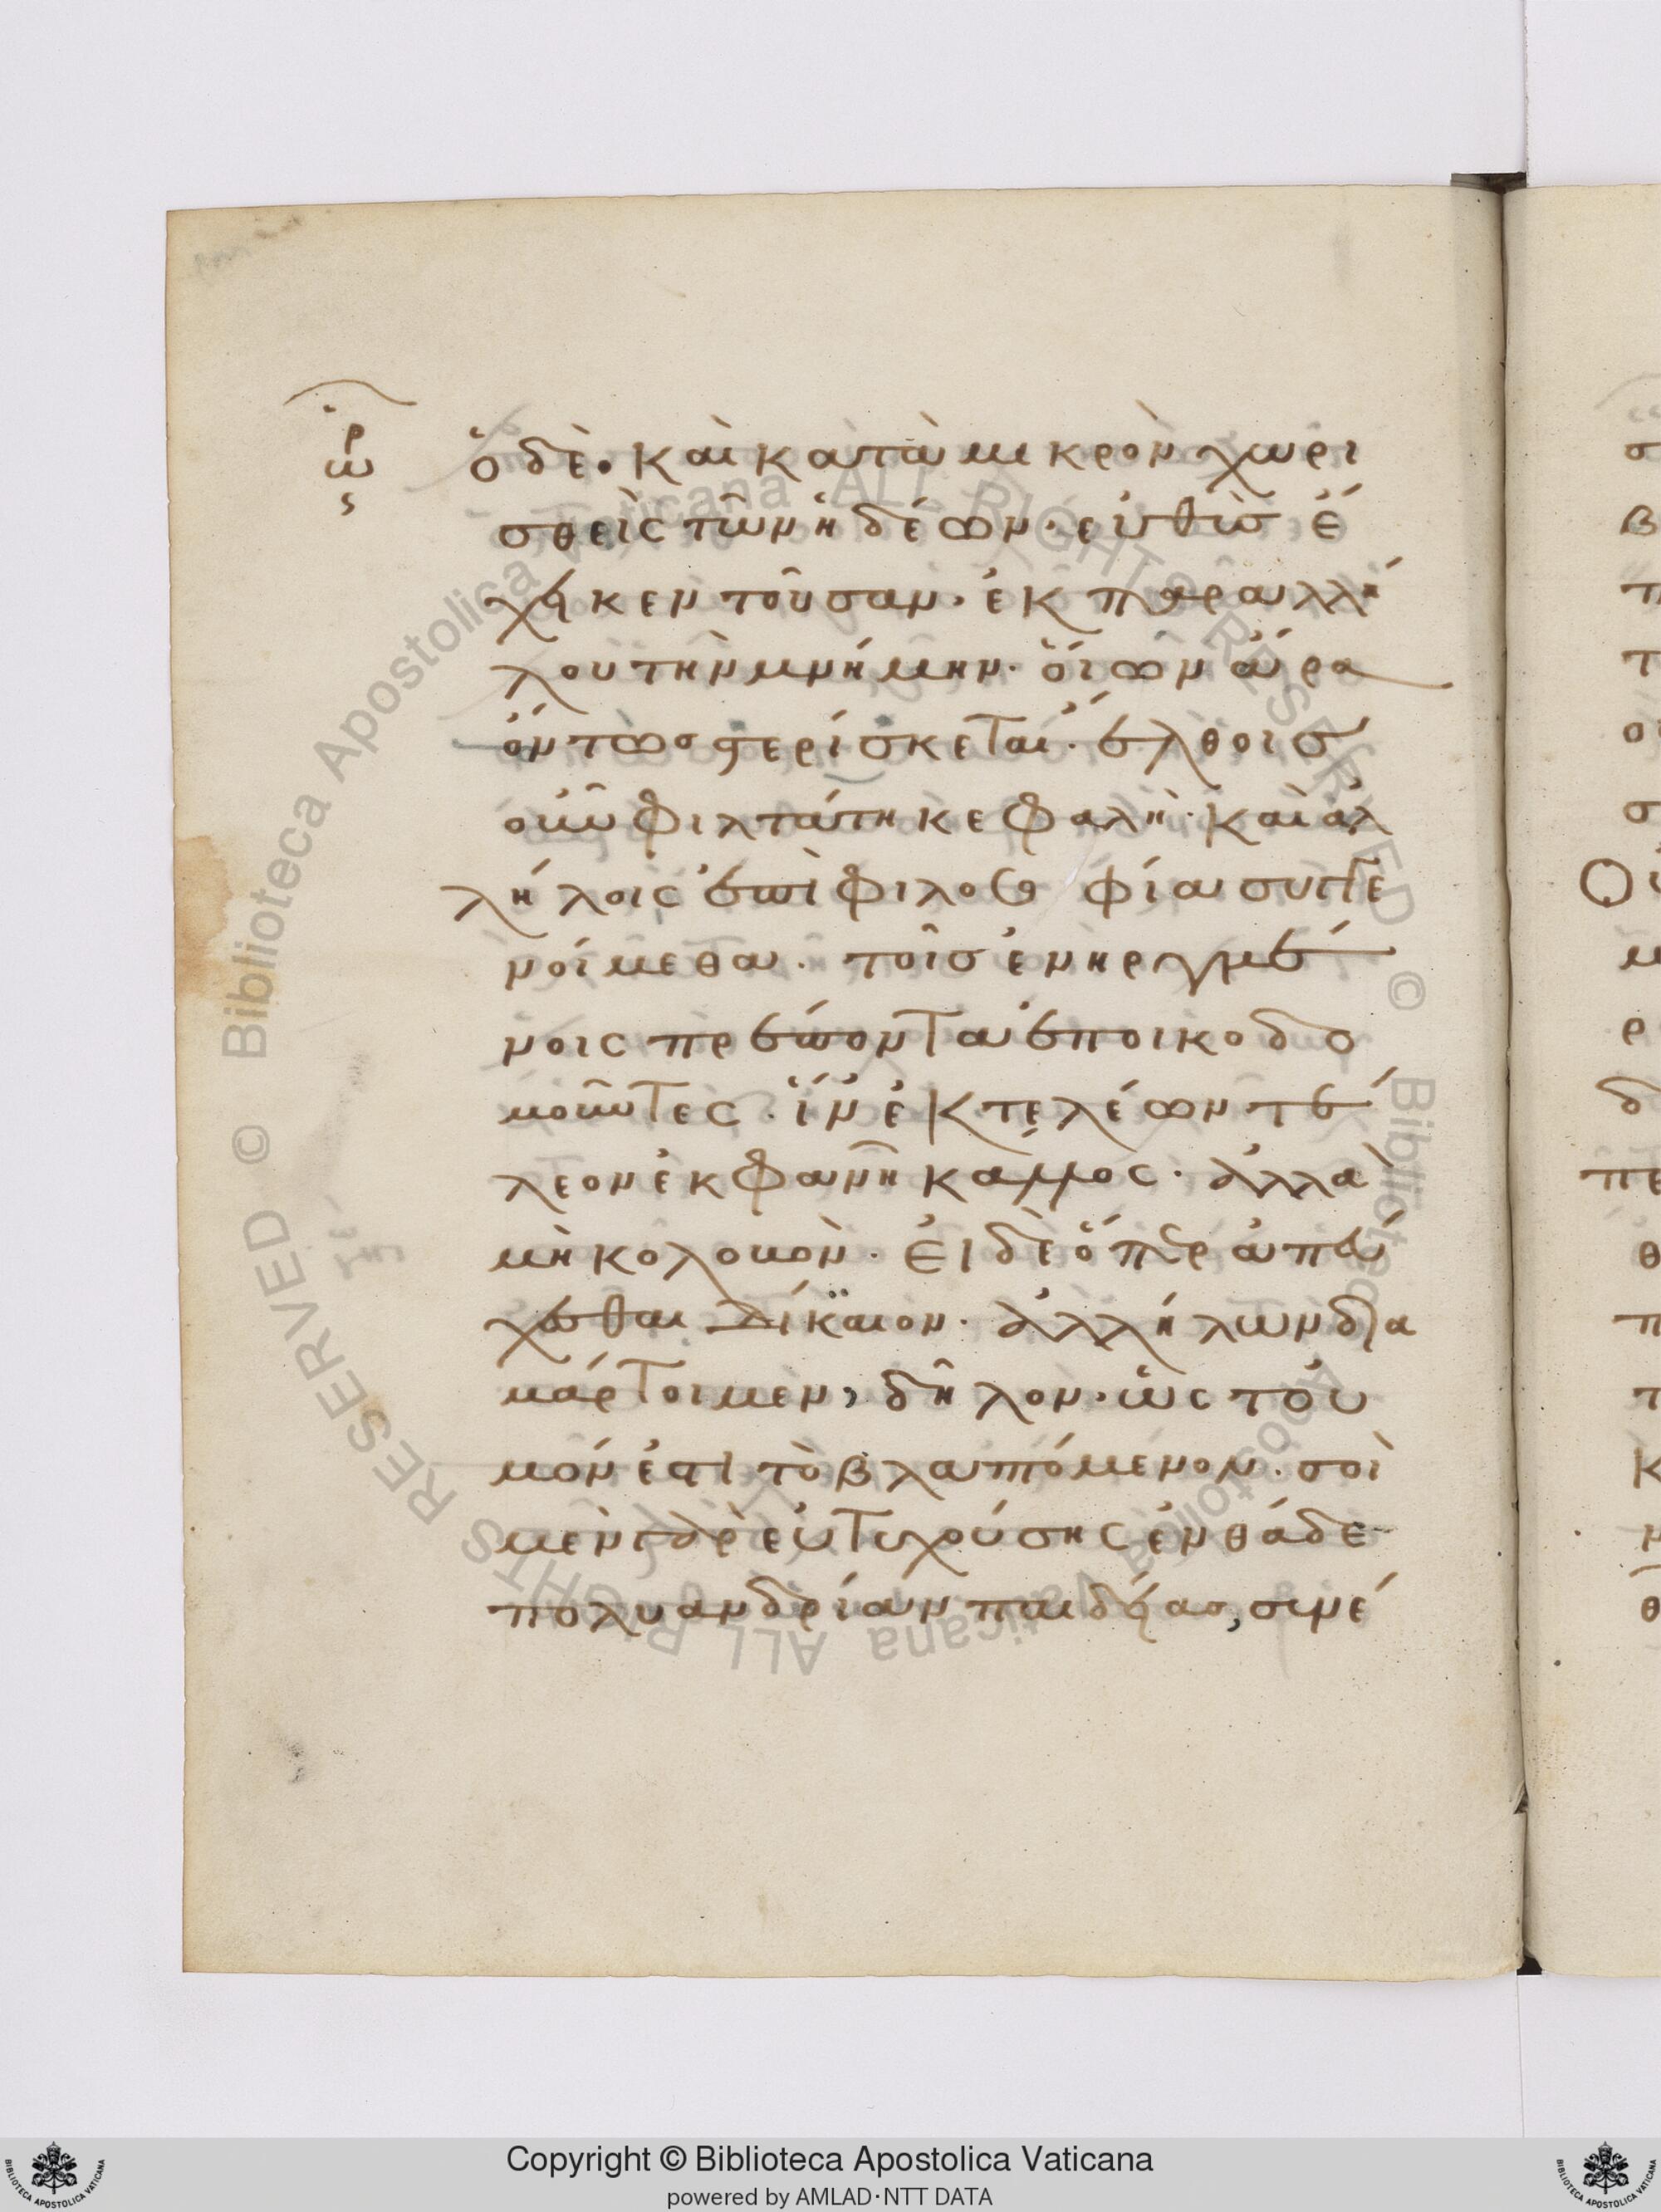 ὡρς
ὁ δὲ. καὶ κατὰ μικρὸν χωρι
σθεὶς τῶν ἡδέων· εὐθὺσ ἔ
χηκεν τοῦσαν· ἐκ παραλλή
λου τὴν μνήμην· ὅιων ἄρα
ὄντωσ στερίσκεται· ἔλθοισ
οὖν φιλτάτη κεφαλή· καὶ ἀλ
λήλοις ἐπὶ φιλοσοφίαν συνγε
νοίμεθα. τοῖσ ἐνηργμέ
νοις πρέποντα ἐποικοδο
μοῦντες. ἵν' ἐκ τελέων τέ
λεον ἐκφανῆ κάλλος· ἀλλὰ
μὴ κολοιὸν. εἰ δὲ ὅπερ ἀπεύ
χεσθαι δίκαιον. ἀλλήλων δια
μάρτοιμεν, δῆλον· ὡς τοὐ
μόν ἐστι τὸ βλαπτόμενον. σοὶ
μὲν γὰρ εὐτυχούσης ἐνθάδε
πολυανδρίαν παιδείασ, σινέ
Copyright © Biblioteca Apostolica Vaticana
powered by AMLAD·NTT DATA